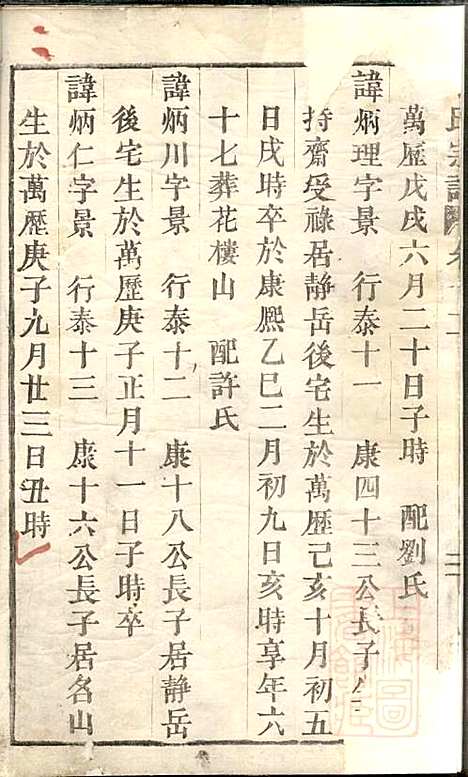 氏宗譜
萬歷戊戌六月二十日子時　配劉氏
諱炳理字景　行泰十一　康四十三公長子
持齋受祿居静岳後宅生於萬歷己亥十月初五
日戌時卒於康熙乙巳二月初九日亥時享年六
十七葬花樓山　配許氏
諱炳川字景　行泰十二　康十八公長子居静岳
後宅生於萬歷庚子正月十一日子時卒
諱炳仁字景　行泰十三　康十六公長子居名山
生於萬歷庚子九月廿三日丑時